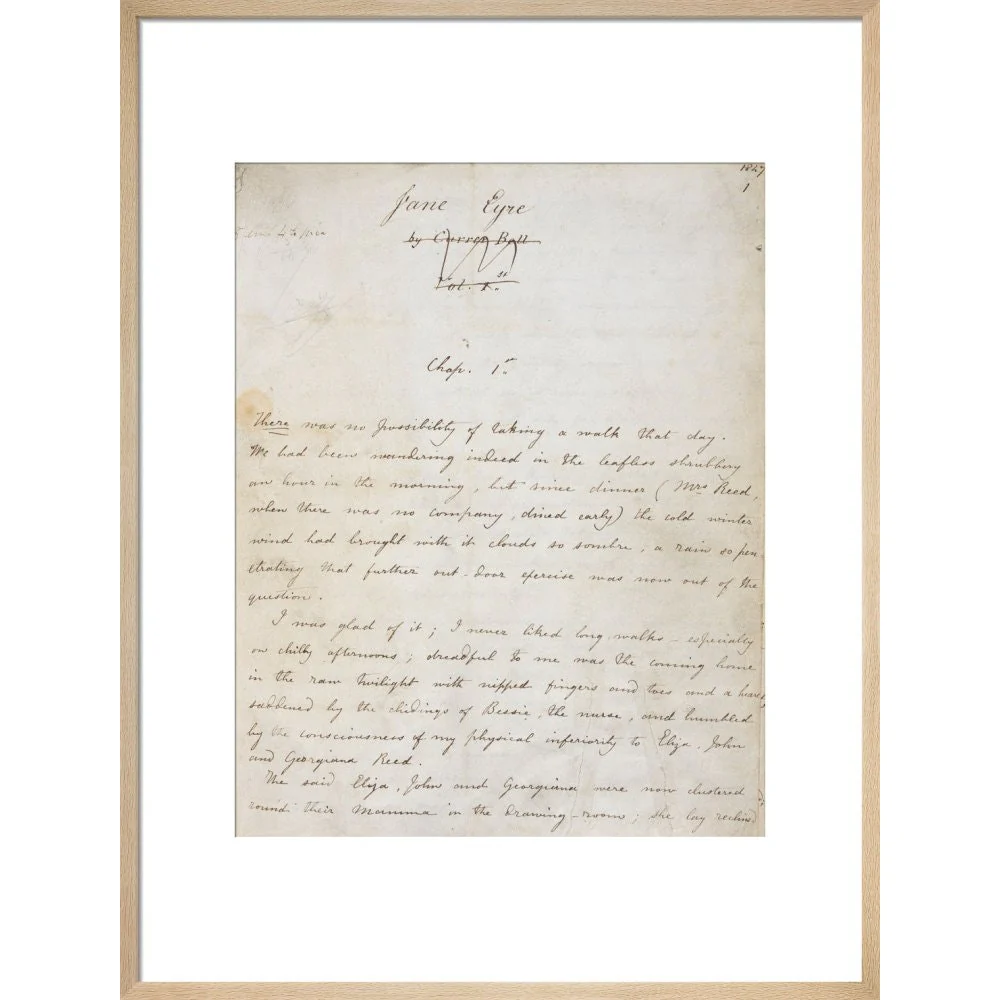 1847
1
Jane Eyre
by Currer Bell
Vol. 1.st
Chap. 1st
There was no possibility of taking a walk that day.
We had been wandering indeed in the leafless shrubbery
an hour in the morning, but since dinner (Mrs Reed,
when there was no company, dined early) the cold winter
wind had brought with it clouds so sombre, a rain so pen
etrating that further out-door exercise was now out of the
question.
I was glad of it; I never liked long walks - especially
on chilly afternoons; dreadful to me was the coming home
in the raw twilight with nipped fingers and toes and a heart
saddened by the chidings of Bessie, the nurse, and humbled
by the consciousness of my physical inferiority to Eliza, John
and Georgiana Reed.
The said Eliza, John and Georgiana were now clustered
round their Mamma in the drawing-room; she lay reclin